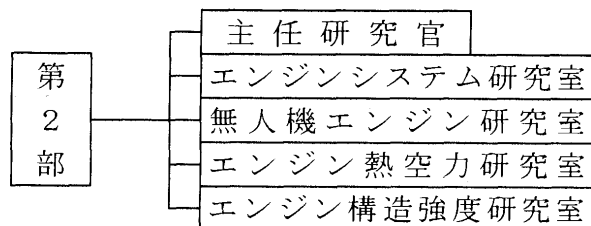 第2部
主任研究官
エンジンシステム研究室
無人機エンジン研究室
エンジン熱空力研究室
エンジン構造強度研究室